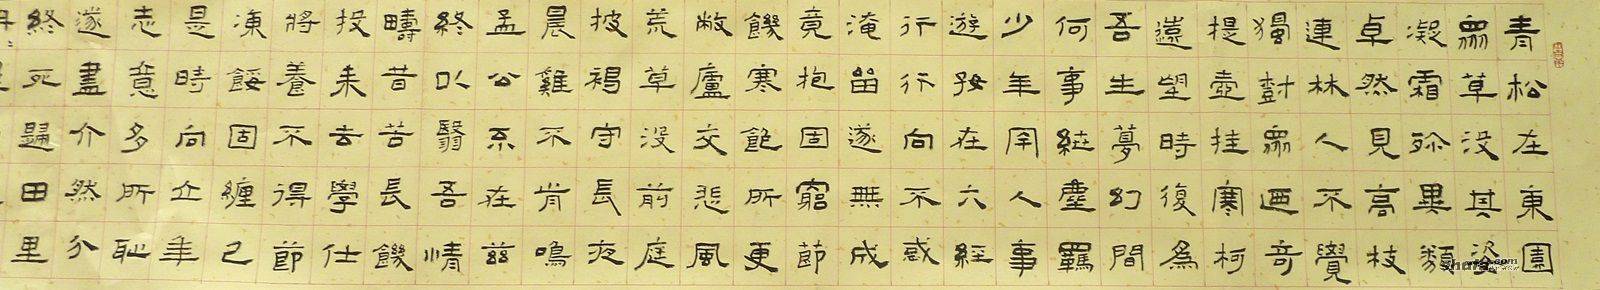 青松在東園
眾草没其姿
凝霜殄異類
卓然見高枝
連林人不覺
獨樹眾迺奇
提壺挂寒柯
遠望時復為
吾生夢幻間
何事紲塵羈
少年罕人事
遊好在六經
行行向不惑
淹留遂無成
竟抱固窮節
饑寒飽所更
敝廬交悲風
荒草没前庭
披褐守長夜
晨雞不肯鳴
孟公不在茲
終以翳吾情
疇昔苦長饑
投耒去學仕
將養不得節
凍餒固纏己
是時向立年
志意多所恥
遂盡介然分
終死歸田里